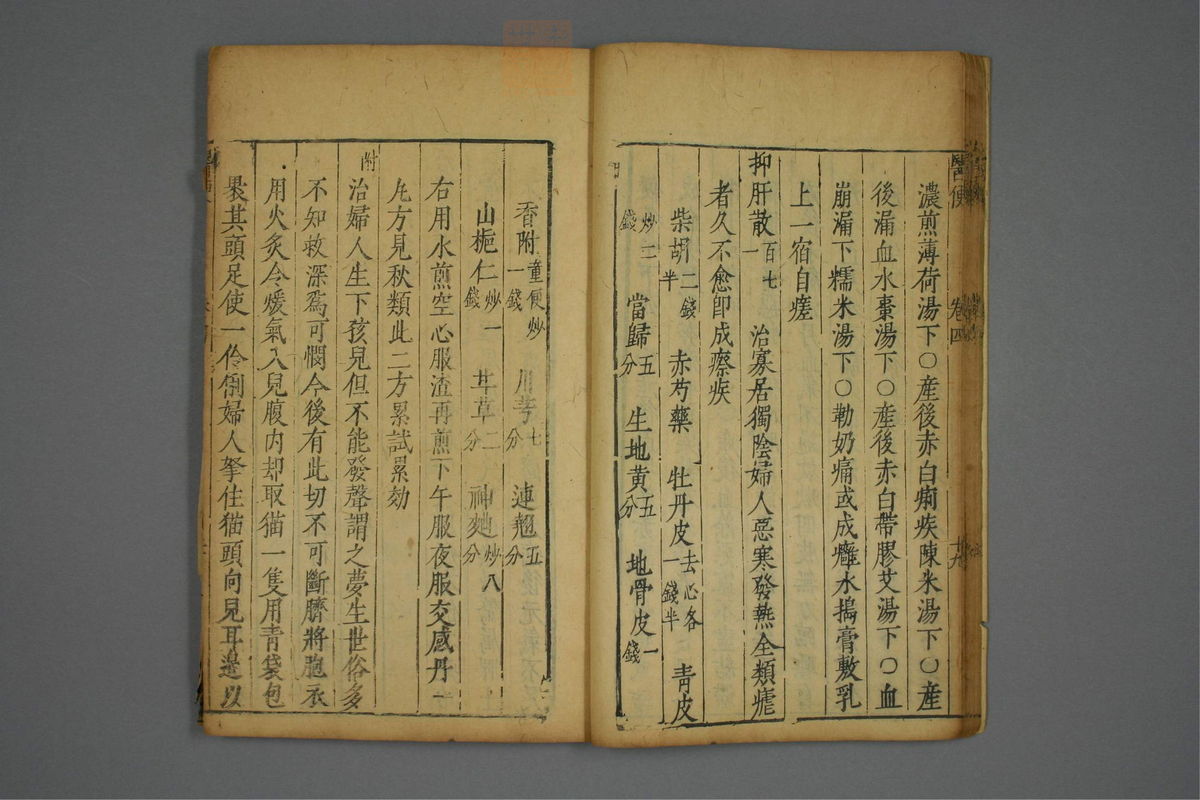 醫便 卷四 十九
濃煎薄荷湯下〇產後赤白痢疾陳米湯下〇產
後漏血水棗湯下〇產後赤白帶膠艾湯下〇血
崩漏下糯米湯下〇勒奶痛或成癰水搗膏敷乳
上一宿自瘥
抑肝散百七一 治寡居獨陰婦人惡寒發熱全類瘧
者久不愈卽成瘵疾
柴胡二錢半 赤芍藥 牡丹皮去心各一錢半 青皮
炒二錢 當歸五分 生地黄五分 地骨皮一錢
香附童便炒一錢 川芎七分 連翹五分
山梔仁炒一錢 甘草二分 神麯炒八分
右用水煎空心服渣再煎下午服夜服交感丹
丸方見秋類此二方累試累効
附
治婦人生下孩兒但不能發聲謂之夢生世俗多
不知救深爲可憫今後有此切不可斷臍將胞衣
用火炙令煖氣入兒腹内却取猫一隻用青袋包
裹其頭足使一伶俐婦人拏住猫頭向兒耳邊以